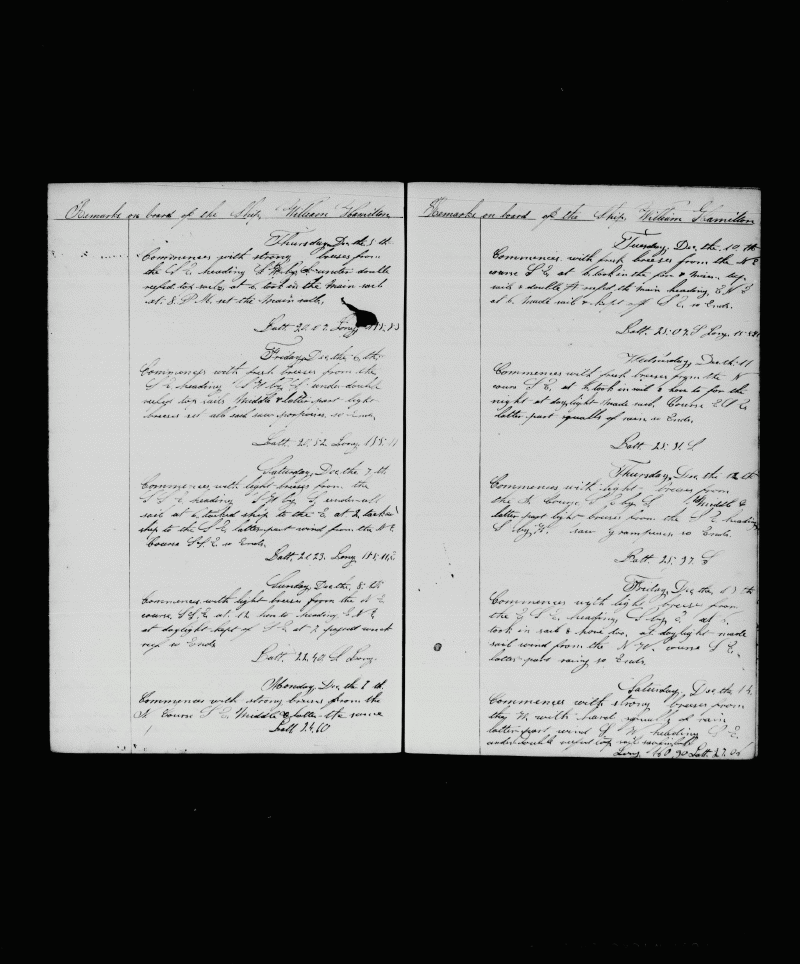 Remarks on board of the Ship William Hamilton
Thursday, Dec the 5 th
Commences with strong breeses from
the S E heading S W by S under double
reefed top sails, at 6 took in the main sail
at 8 P M. set the main sail.
Latt 20.07. Long
Friday, Dec the 6 th
Commences with fresh breeses from the
S E heading S W by S under double
reefs top sails Middle & latter part light
breeses set all sail saw porpoises, so Ends
Latt. 20.52 Long 155.11
Saturday, Dec the 7 th
Commences with light breses from the
S S E heading S W by under all
sail at 6 tacked ship to the E, at 2 tacked
ship to the S E latter part wind from the N E
Course S E so Ends.
Latt. 21.23. Long
Sunday, Dec the 8 th
Commences with light breeses from the N E
course at 12 hove to heading E N E
at daylight kept of S E at 7
so Ends
Latt. 22.40 S Long.
Monday, Dec the 9 th.
Commences with strong breeses from the
N Course S E, Middle & latter the same
Latt 24.10
Remarks on board of the Ship William Hamilton
Tuesday, Dec the 10 th
Commences with fresh breeses from the N E
course S E at 6 took in the fore & main top
sail & double reefd the main heading E N E
at 6 made sail & kept off S E so Ends.
Latt. 25.07 S Long.
Wednesday Dec the 11
Commences with fresh breeses from the N
course S E, at 6 took in sail & hove to for the
night at daylight made sail. Course
latter part squalls of rain so Ends.
Latt 25.31 S
Thursday, Dec the 12 th
Commences with light breeses from
the N Course S E by S. Middle &
latter part light breeses from the S E heading
S by W. saw grampuses so Ends.
Latt. 25.37. S
Friday, Dec the 13 th
Commences with light breese from
the E S E, heading S by E, at 6.
took in sail & hove to, at daylight made
sail wind from the N W. course S E,
latter part rainy so Ends
Saturday, Dec the 14
Commences with strong breeses from
the N, with hard squalls of rain
latter part wind S W heading S E.
under double reefed top sails
Long. Latt. 27.00